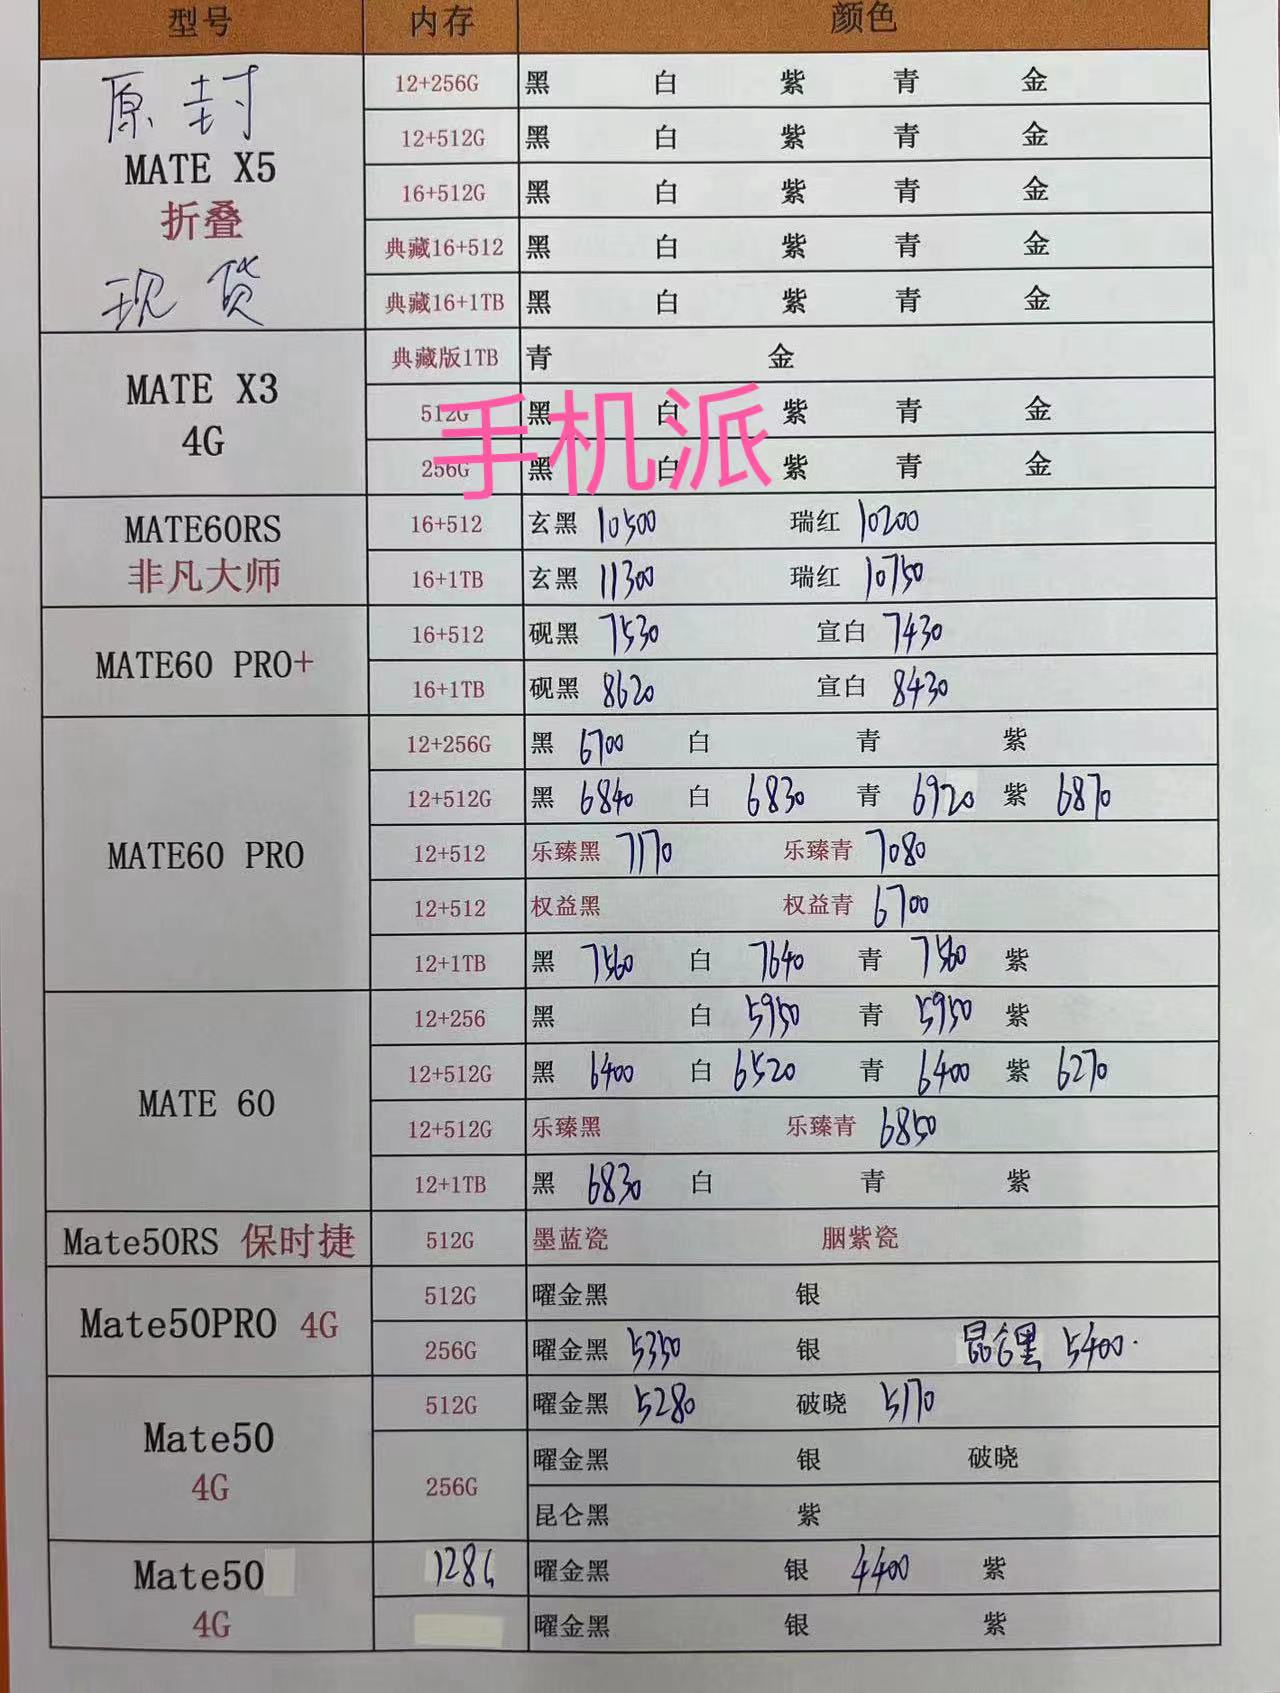 型号 内存 颜色
原封
MATE X5
折叠
现货
12+256G 黑 白 紫 青 金
12+512G 黑 白 紫 青 金
16+512G 黑 白 紫 青 金
典藏16+512 黑 白 紫 青 金
典藏16+1TB 黑 白 紫 青 金
MATE X3
4G
典藏版1TB 青 金
512G 黑 白 紫 青 金
256G 黑 白 紫 青 金
手机派
MATE60RS
非凡大师
16+512 玄黑 10500 瑞红 10200
16+1TB 玄黑 11300 瑞红 10750
MATE60 PRO+
16+512 砚黑 7530 宣白 7430
16+1TB 砚黑 8620 宣白 8430
MATE60 PRO
12+256G 黑 6700 白 青 紫
12+512G 黑 6840 白 6830 青 6920 紫 6870
12+512 乐臻黑 7170 乐臻青 7080
12+512 权益黑 权益青 6700
12+1TB 黑 7560 白 7640 青 7560 紫
MATE 60
12+256 黑 白 5950 青 5950 紫
12+512G 黑 6400 白 6520 青 6400 紫 6270
12+512G 乐臻黑 乐臻青 6850
12+1TB 黑 6830 白 青 紫
Mate50RS 保时捷 512G 墨蓝瓷 胭紫瓷
Mate50PRO 4G
512G 曜金黑 银
256G 曜金黑 5350 银 昆仑黑 5400
Mate50
4G
512G 曜金黑 5280 破晓 5170
256G 曜金黑 银 破晓
昆仑黑 紫
Mate50
4G
128G 曜金黑 银 4400 紫
曜金黑 银 紫